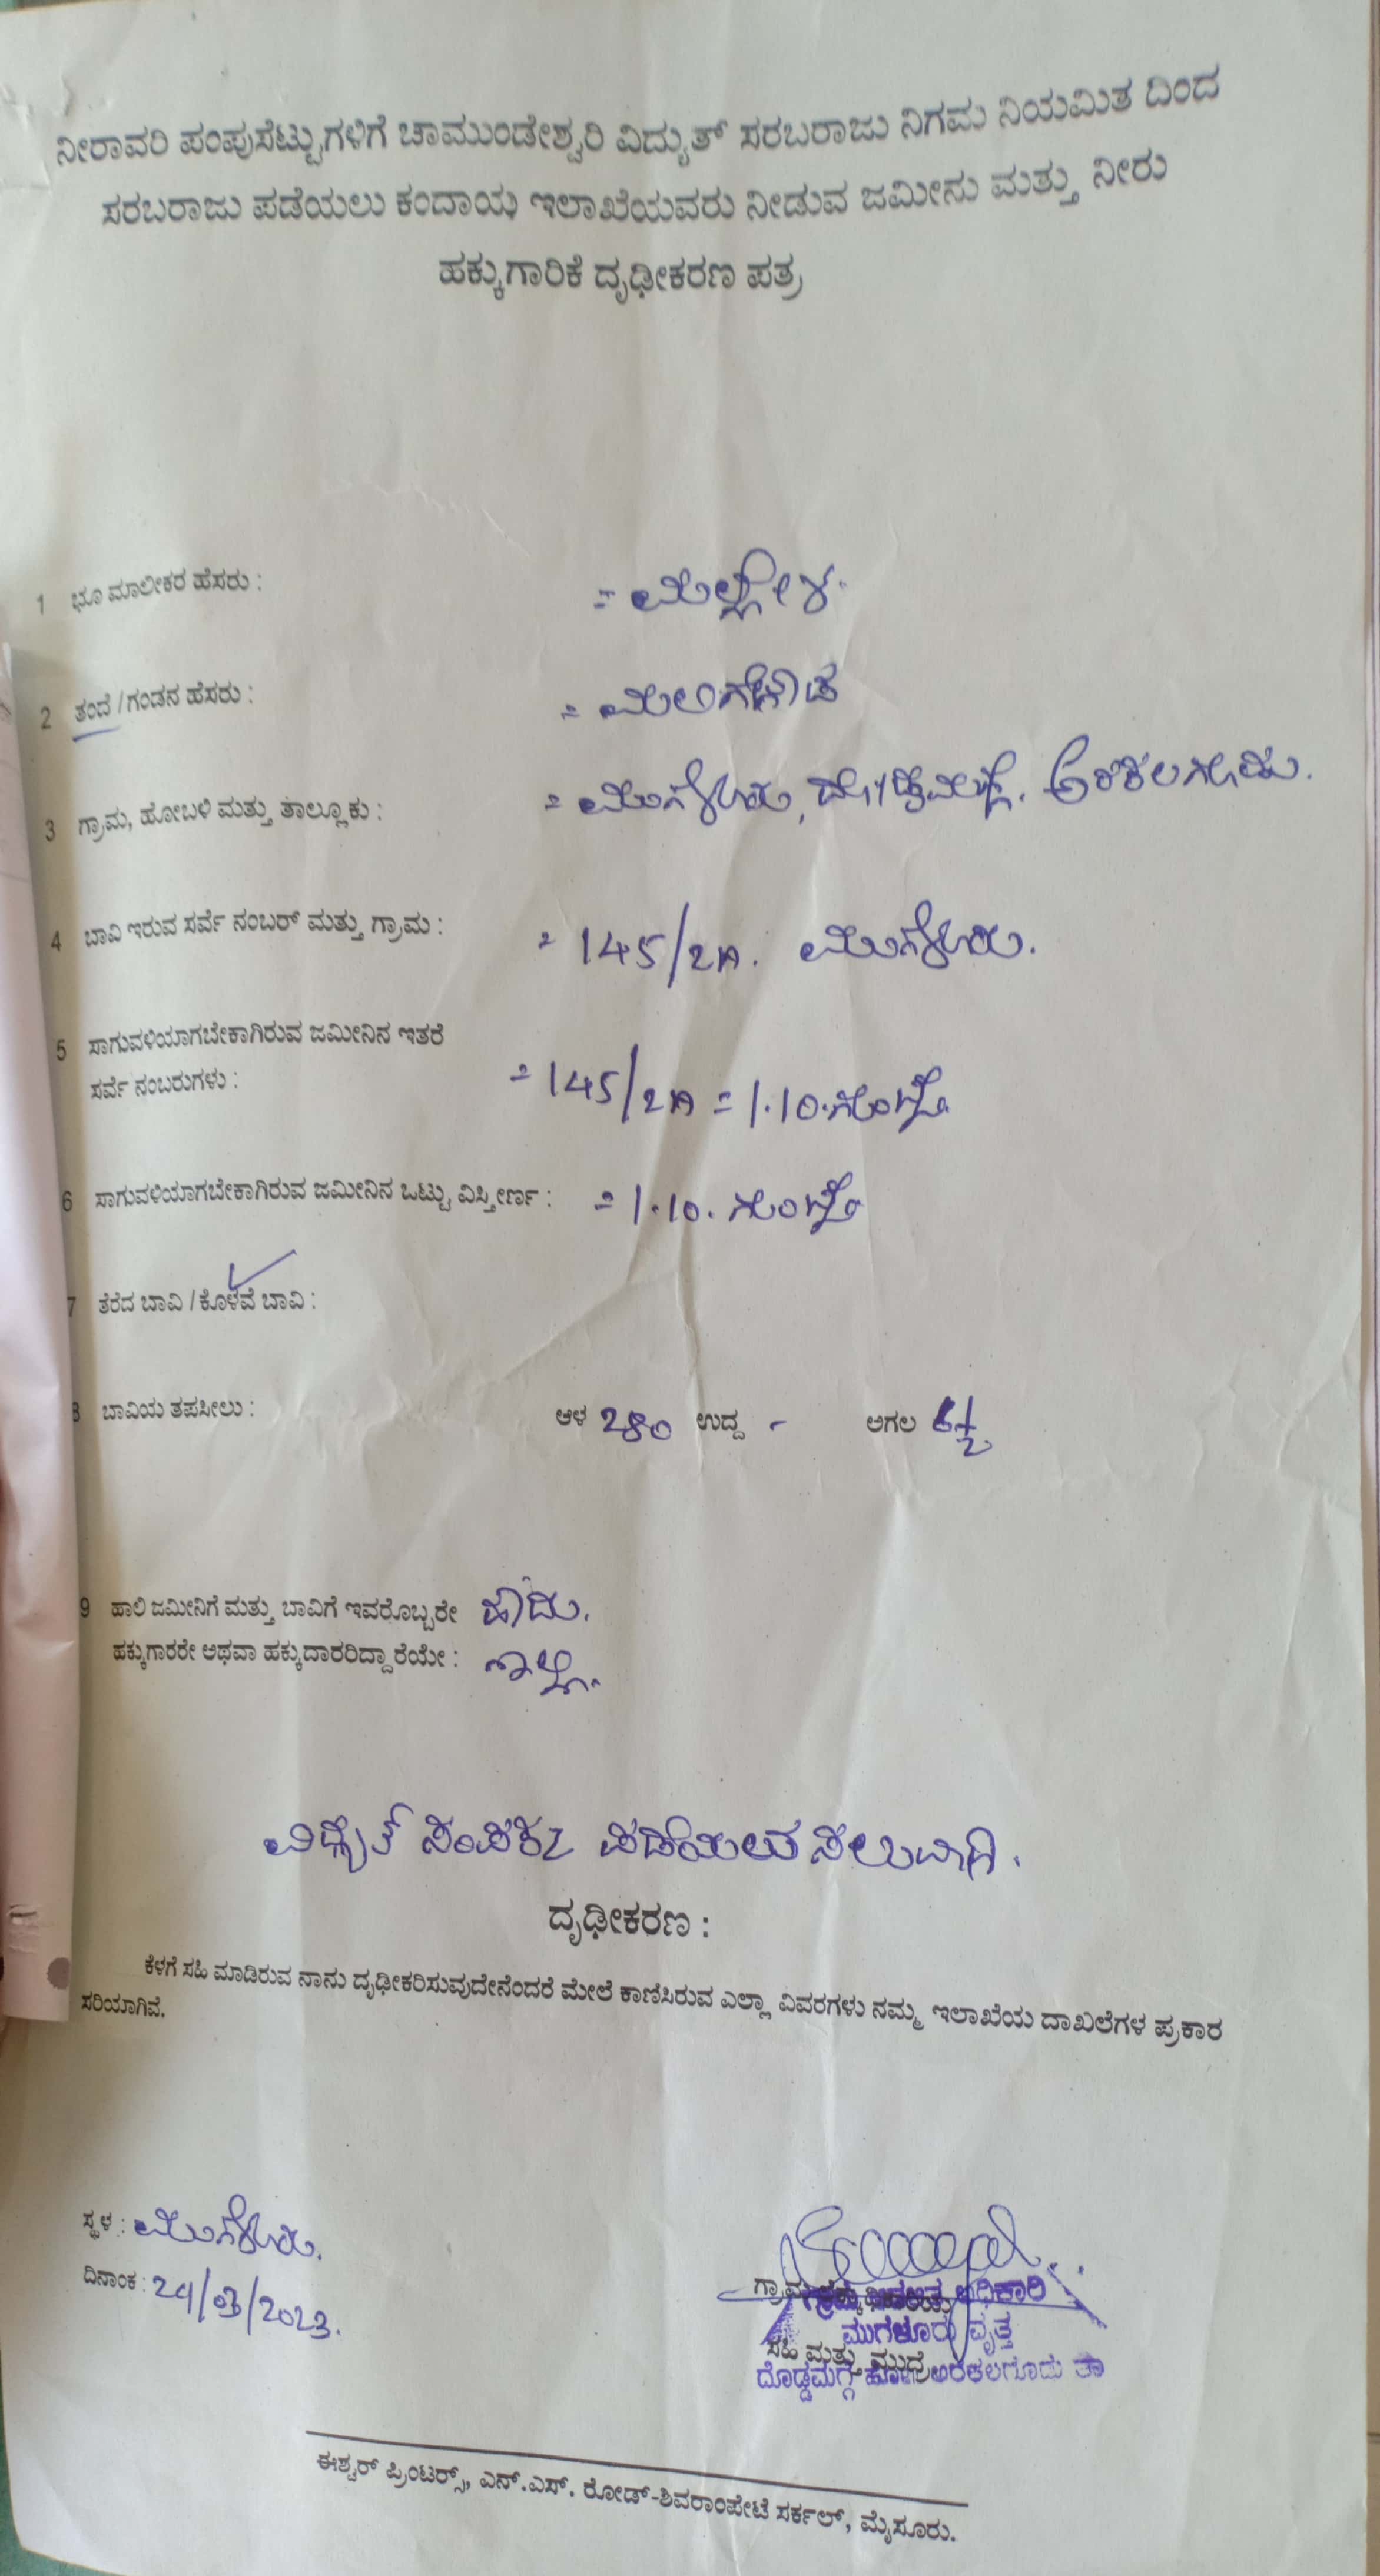 ನೀರಾವರಿ ಪಂಪುಸೆಟ್ಟುಗಳಿಗೆ ಚಾಮುಂಡೇಶ್ವರಿ ವಿದ್ಯುತ್ ಸರಬರಾಜು ನಿಗಮ ನಿಯಮಿತ ದಿಂದ
ಸರಬರಾಜು ಪಡೆಯಲು ಕಂದಾಯ ಇಲಾಖೆಯವರು ನೀಡುವ ಜಮೀನು ಮತ್ತು ನೀರು
ಹಕ್ಕುಗಾರಿಕೆ ದೃಢೀಕರಣ ಪತ್ರ
1 ಭೂ ಮಾಲೀಕರ ಹೆಸರು : = ಮಲ್ಲೇಶ.
2 ತಂದೆ / ಗಂಡನ ಹೆಸರು : =
3 ಗ್ರಾಮ, ಹೋಬಳಿ ಮತ್ತು ತಾಲ್ಲೂಕು : = ಮುಗಳೂರು, ದೊಡ್ಡಮಗ್ಗೆ. ಅರಕಲಗೂಡು.
4 ಬಾವಿ ಇರುವ ಸರ್ವೆ ನಂಬರ್ ಮತ್ತು ಗ್ರಾಮ : = 145/2A. ಮುಗಳೂರು.
5 ಸಾಗುವಳಿಯಾಗಬೇಕಾಗಿರುವ ಜಮೀನಿನ ಇತರೆ
ಸರ್ವೆ ನಂಬರುಗಳು : = 145/2A = 1.10.ಗುಂಟೆ
6 ಸಾಗುವಳಿಯಾಗಬೇಕಾಗಿರುವ ಜಮೀನಿನ ಒಟ್ಟು ವಿಸ್ತೀರ್ಣ : = 1.10. ಗುಂಟೆ
7 ತೆರೆದ ಬಾವಿ / ಕೊಳವೆ ಬಾವಿ :
8 ಬಾವಿಯ ತಪಸೀಲು : ಆಳ 280 ಉದ್ದ - ಅಗಲ 6½
9 ಹಾಲಿ ಜಮೀನಿಗೆ ಮತ್ತು ಬಾವಿಗೆ ಇವರೊಬ್ಬರೇ ಹೌದು.
ಹಕ್ಕುಗಾರರೇ ಅಥವಾ ಹಕ್ಕುದಾರರಿದ್ದಾರೆಯೇ : ಇಲ್ಲ.
ವಿದ್ಯುತ್ ಸಂಪರ್ಕ ಪಡೆಯಲು ಸಲುವಾಗಿ.
ದೃಢೀಕರಣ :
ಕೆಳಗೆ ಸಹಿ ಮಾಡಿರುವ ನಾನು ದೃಢೀಕರಿಸುವುದೇನೆಂದರೆ ಮೇಲೆ ಕಾಣಿಸಿರುವ ಎಲ್ಲಾ ವಿವರಗಳು ನಮ್ಮ ಇಲಾಖೆಯ ದಾಖಲೆಗಳ ಪ್ರಕಾರ
ಸರಿಯಾಗಿವೆ.
ಸ್ಥಳ : ಮುಗಳೂರು.
ದಿನಾಂಕ : 24/03/2023.
ಅಧಿಕಾರಿ
ಮುಗಳೂರು ವೃತ್ತ
ಸಹಿ ಮತ್ತು ಮುದ್ರೆ
ದೊಡ್ಡಮಗ್ಗೆ ಹೋಬಳಿ ಅರಕಲಗೂಡು ತಾ
ಈಶ್ವರ್ ಪ್ರಿಂಟರ್ಸ್, ಎನ್.ಎಸ್. ರೋಡ್-ಶಿವರಾಂಪೇಟೆ ಸರ್ಕಲ್, ಮೈಸೂರು.